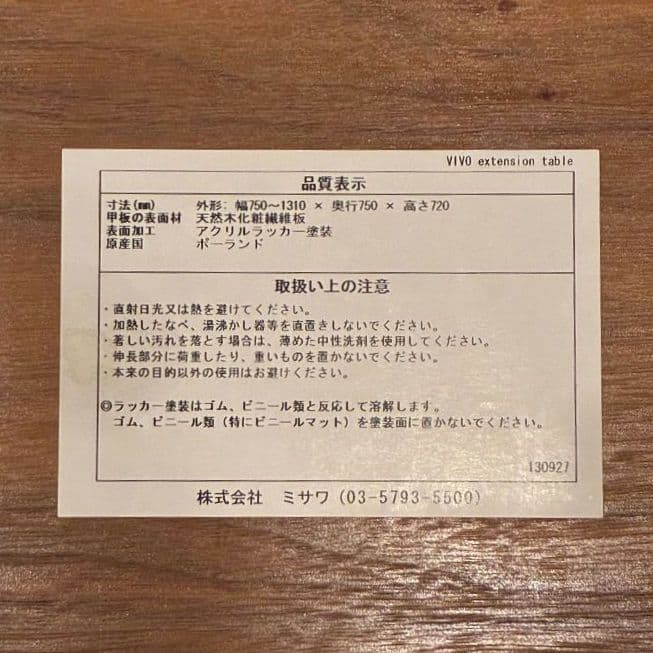 VIVO extension table
品質表示
寸法(mm) 外形: 幅750~1310 × 奥行750 × 高さ720
甲板の表面材 天然木化粧繊維板
表面加工 アクリルラッカー塗装
原産国 ポーランド
取扱い上の注意
・直射日光又は熱を避けてください。
・加熱したなべ、湯沸かし器等を直置きしないでください。
・著しい汚れを落とす場合は、薄めた中性洗剤を使用してください。
・伸長部分に荷重したり、重いものを置かないでください。
・本来の目的以外の使用はお避けください。
◎ラッカー塗装はゴム、ビニール類と反応して溶解します。
ゴム、ビニール類（特にビニールマット）を塗装面に置かないでください。
130927
株式会社 ミサワ (03-5793-5500)